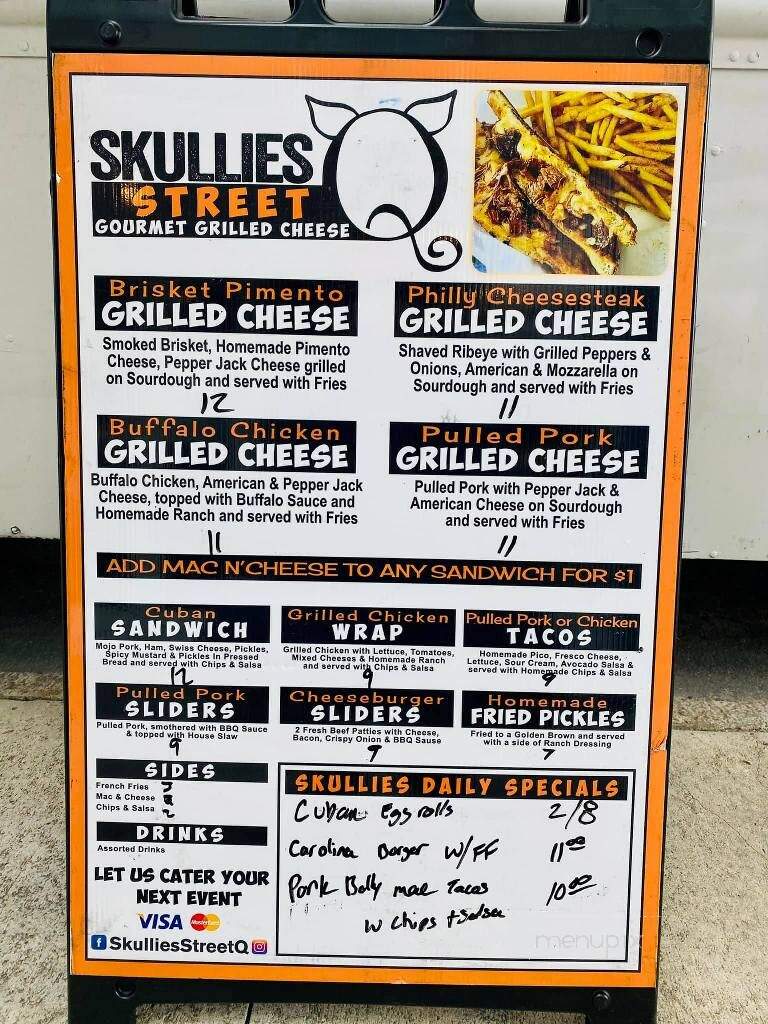 SKULLIES
STREET
GOURMET GRILLED CHEESE
Brisket Pimento
GRILLED CHEESE
Smoked Brisket, Homemade Pimento
Cheese, Pepper Jack Cheese grilled
on Sourdough and served with Fries
12
Philly Cheesesteak
GRILLED CHEESE
Shaved Ribeye with Grilled Peppers &
Onions, American & Mozzarella on
Sourdough and served with Fries
11
Buffalo Chicken
GRILLED CHEESE
Buffalo Chicken, American & Pepper Jack
Cheese, topped with Buffalo Sauce and
Homemade Ranch and served with Fries
11
Pulled Pork
GRILLED CHEESE
Pulled Pork with Pepper Jack &
American Cheese on Sourdough
and served with Fries
11
ADD MAC N'CHEESE TO ANY SANDWICH FOR $1
Cuban
SANDWICH
Mojo Pork, Ham, Swiss Cheese, Pickles,
Spicy Mustard & Pickles in Pressed
Bread and served with Chips & Salsa
12
Grilled Chicken
WRAP
Grilled Chicken with Lettuce, Tomatoes,
Mixed Cheeses & Homemade Ranch
and served with Chips & Salsa
9
Pulled Pork or Chicken
TACOS
Homemade Pico, Fresco Cheese,
Lettuce, Sour Cream, Avocado Salsa &
served with Homemade Chips & Salsa
9
Pulled Pork
SLIDERS
Pulled Pork, smothered with BBQ Sauce
& topped with House Slaw
9
Cheeseburger
SLIDERS
2 Fresh Beef Patties with Cheese,
Bacon, Crispy Onion & BBQ Sause
9
Homemade
FRIED PICKLES
Fried to a Golden Brown and served
with a side of Ranch Dressing
7
SIDES
French Fries 3
Mac & Cheese
Chips & Salsa 2
DRINKS
Assorted Drinks
LET US CATER YOUR
NEXT EVENT
VISA MasterCard
f SkulliesStreetQ
SKULLIES DAILY SPECIALS
Cuban Egg rolls 2/8
Carolina Burger W/FF 11.00
Pork Belly mac Tacos 10.00
w chips + Salsa
menupix